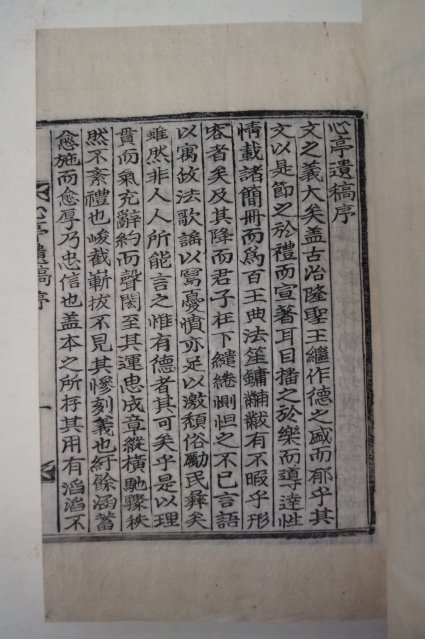 心亭遺稿序
文之義大矣盖古冶隆聖王繼作德之盛而郁乎其
文以是節之於禮而宣著耳目播之於樂而導達性
情載諸簡冊而爲百王典法笙鏞黼黻有不暇乎形
容者矣及其降而君子在下繾綣惻怛之不已言語
以寓故法歌謠以寫憂憤亦足以激頹俗勵民彛矣
雖然非人人所能言之惟有德者其可矣乎是以理
貫而氣充辭約而聲閎至其運忠成章縱橫馳驟秩
然不紊禮也峻截嶄拔不見其慘刻義也紆餘涵蓄
愈施而愈厚乃忠信也盖本之所存其用有滔滔不
心亭遺稿序
一